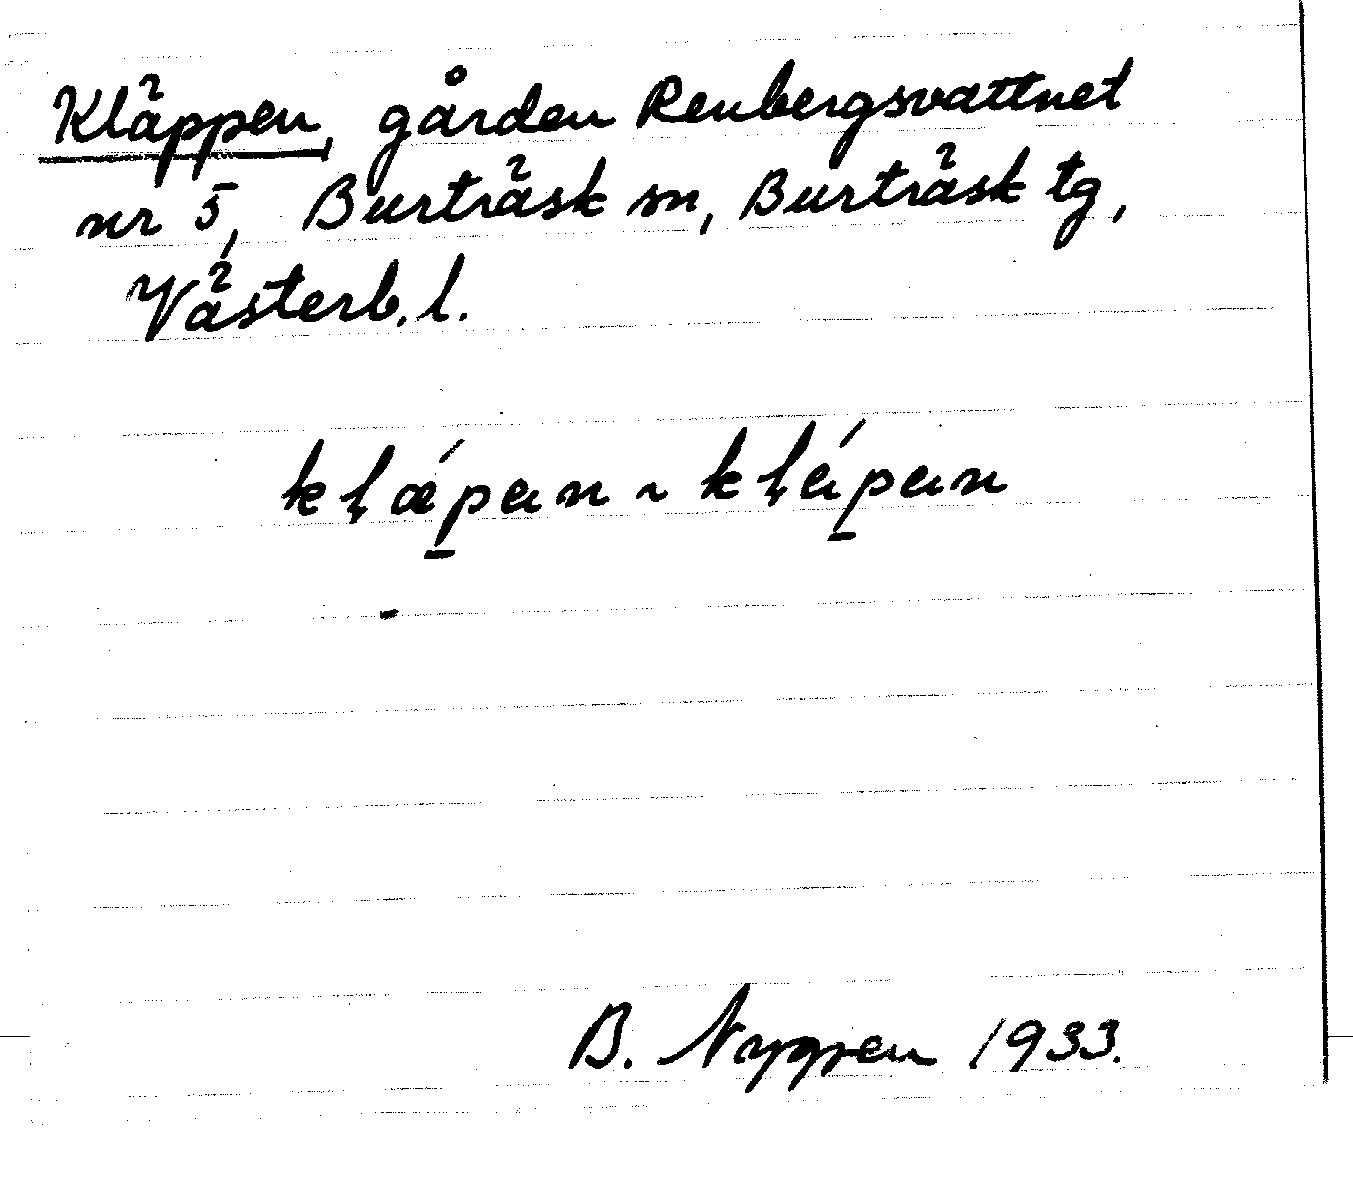 Kläppen, gården Renbergsvattnet
nr 5, Burträsk sn, Burträsk tg,
Västerb. l.
kłæ´p̱an ~ kłá´p̱an
B. Nygren 1933.